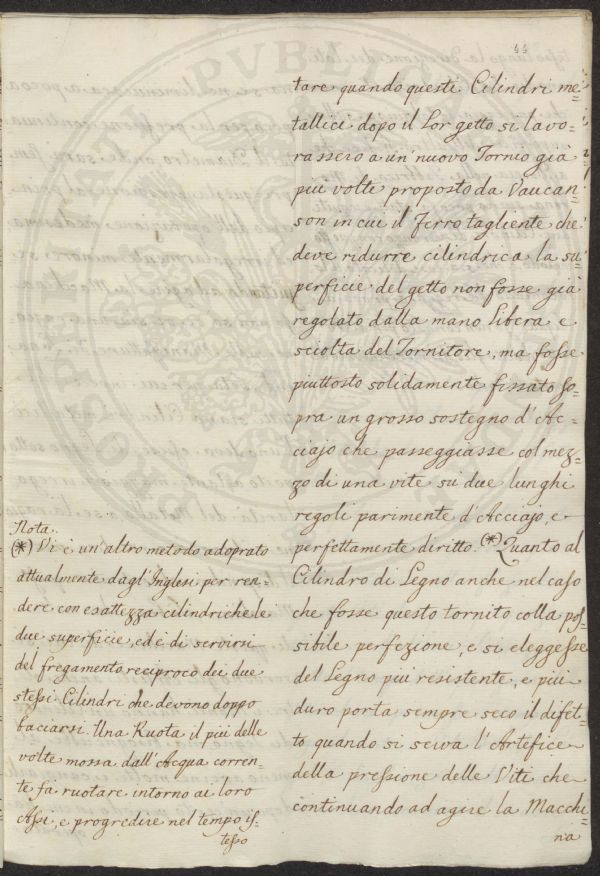 44
tare quando questi Cilindri me-
tallici dopo il Lor getto si lavo-
rassero a un' nuovo Tornio già
più volte proposto da Vaucan-
son in cui il Ferro tagliente che
deve ridurre cilindrica la su-
perficie del getto non fosse già
regolato dalla mano libera e
sciolta del Tornitore, ma fosse
piuttosto solidamente fissato so-
pra un grosso sostegno d'Ac-
ciajo che passeggiasse col mez-
zo di una vite su due lunghi
regoli parimente d'Acciajo, e
perfettamente diritto. (*) Quanto al
Cilindro di Legno anche nel caso
che fosse questo tornito colla pos-
sibile perfezione, e si eleggesse
del Legno piu resistente, e piu
duro porta sempre seco il difet-
to quando si serva l'Artefice
della pressione delle Viti che
continuando ad agire la Macchi-
na
Nota.
(*) Vi è un'altro metodo adoprato
attualmente dagl'Inglesi per ren-
dere con esattezza cilindriche le
due superficie, ed è di servirsi
del fregamento reciproco dei due
stessi Cilindri che devono doppo
baciarsi. Una Ruota il più delle
volte mossa dall'Acqua corren-
te fa ruotare intorno ai loro
Assi, e progredire nel tempo is-
tesso
PUBLICA